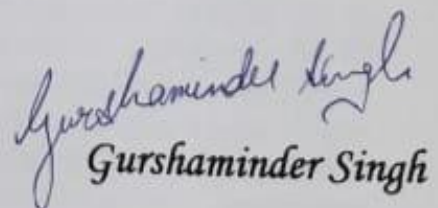 Gurshaminder Singh
Gurshaminder Singh